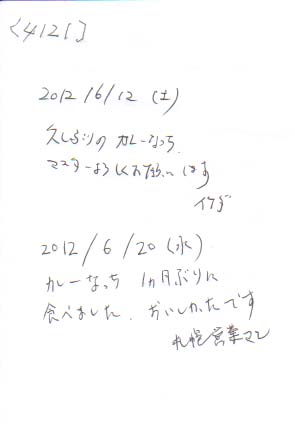 <4121]
2012/6/12 (土)
久しぶりの カレーなっち.
マスターよろしくお願いします
イケダ
2012/6/20(水)
カレーなっち 1カ月ぶりに
食べました. おいしかったです
札幌営業マン